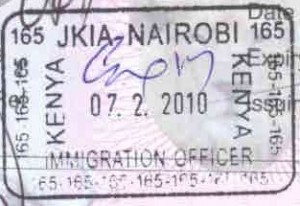 Date
165 JKIA-NAIROBI 165
Expir
KENYA
07. 2. 2010
KENYA
Issu
IMMIGRATION OFFICER
165-165-165-165-165-165-165